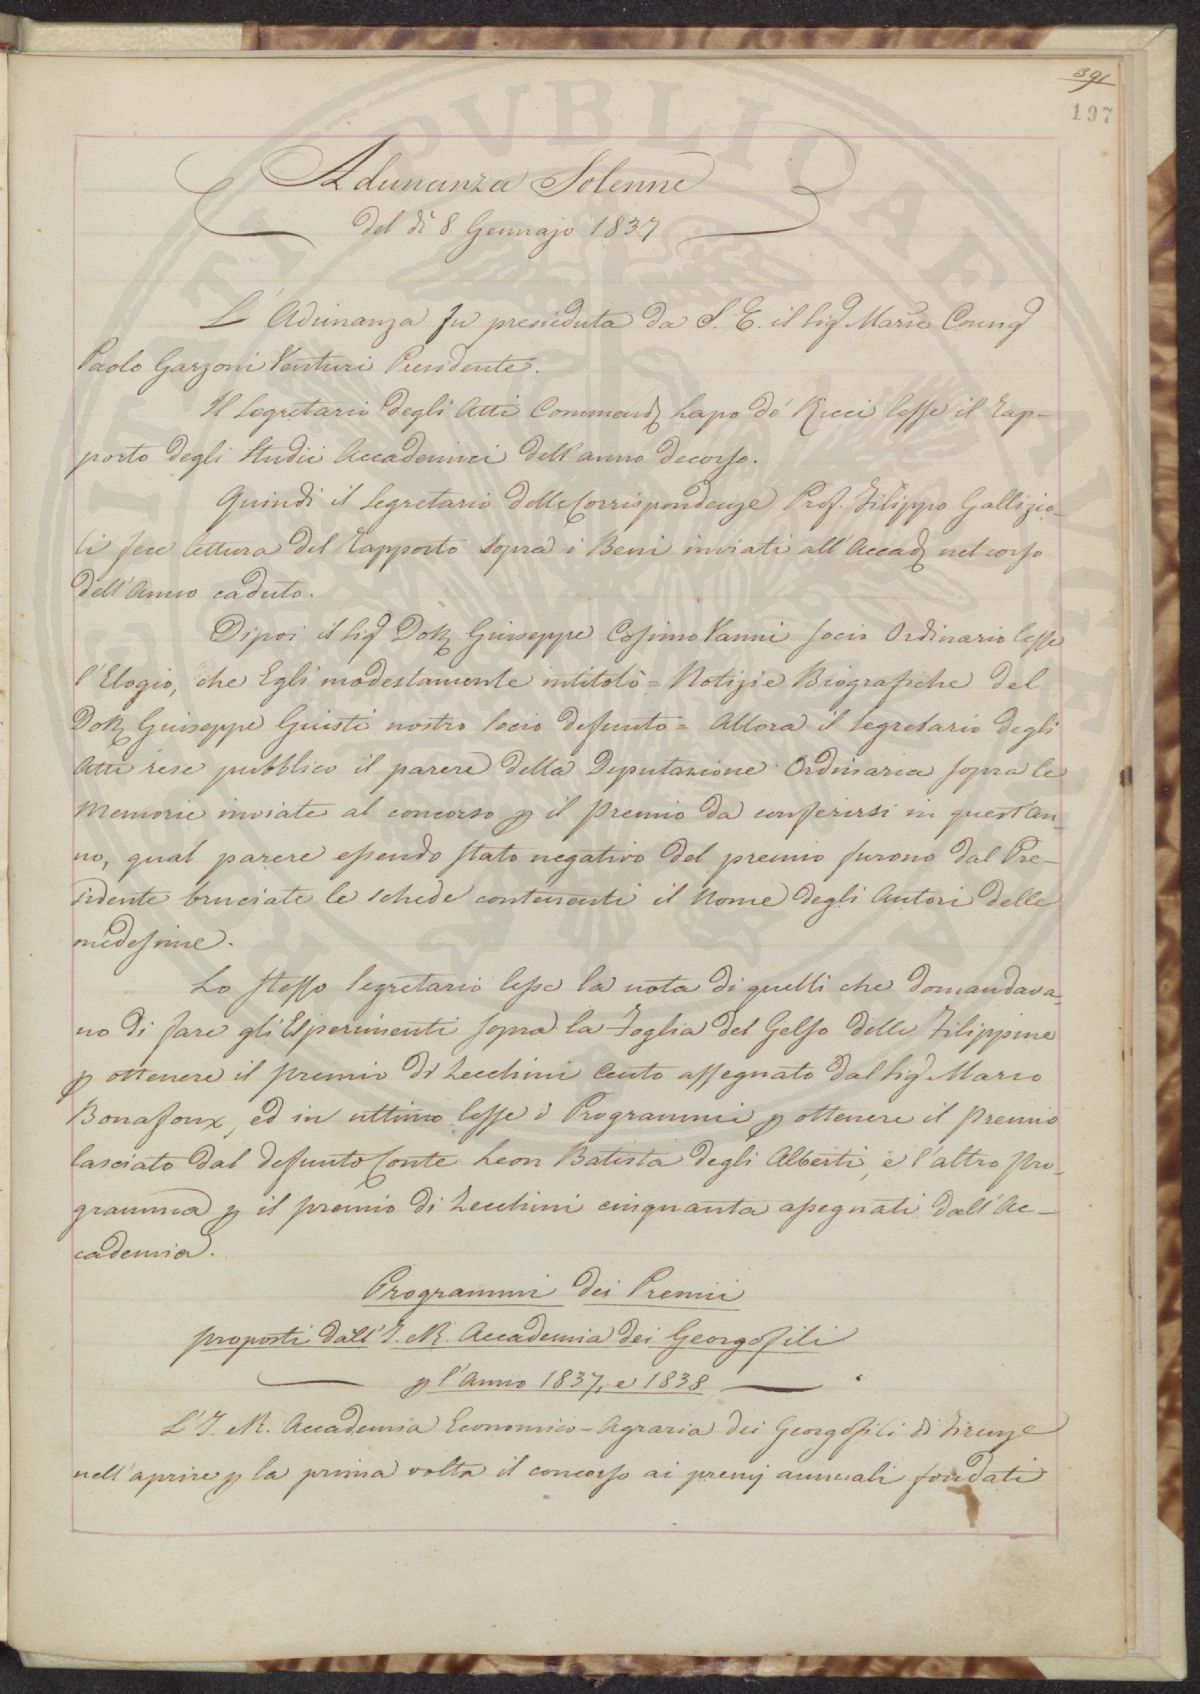 391
197
Adunanza Solenne
del dì 8 Gennajo 1837
L'Adunanza fu presieduta da S. E. il Sig.r Mar.se
Paolo Garzoni Venturi Presidente.
Il Segretario degli Atti Commend. Lapo de' Ricci lesse il Rap-
porto degli Studii Accademici dell'anno decorso.
Quindi il Segretario delle Corrispondenze Prof. Filippo Gallizio-
li fece lettura del Rapporto sopra i Beni inviati all'Accad. nel corso
dell'Anno caduto.
Dipoi il Sig. Dott. Giuseppe Cosimo Vanni Socio Ordinario lesse
l'Elogio, che Egli modestamente intitolò = Notizie Biografiche del
Dott. Giuseppe Giusti nostro Socio defunto = Allora il Segretario degli
Atti rese pubblico il parere della Deputazione Ordinaria sopra le
Memorie inviate al concorso p il Premio da conferirsi in quest'an-
no, qual parere essendo stato negativo del premio furono dal Pre-
sidente bruciate le schede contenenti il Nome degli Autori delle
medesime.
Lo stesso Segretario lesse la nota di quelli che domandava-
no di fare gli Esperimenti sopra la Foglia del Gelso delle Filippine
p ottenere il premio di Zecchini Cento assegnato dal Sig. Marco
Bonafoux, ed in ultimo lesse i Programmi p ottenere il Premio
lasciato dal defunto Conte Leon Batista degli Alberti, e l'altro Pro-
gramma p il premio di Zecchini cinquanta assegnati dall'Ac-
cademia.
Programmi dei Premii
proposti dall'I. e R. Accademia dei Georgofili
p l'Anno 1837, e 1838
L'I. e R. Accademia Economico-Agraria dei Georgofili di Firenze
nell'aprire p la prima volta il concorso ai premj annuali fondati